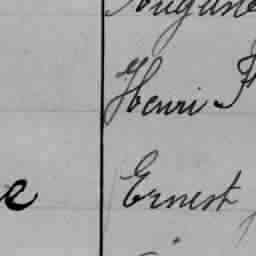 Henri F
e Ernest